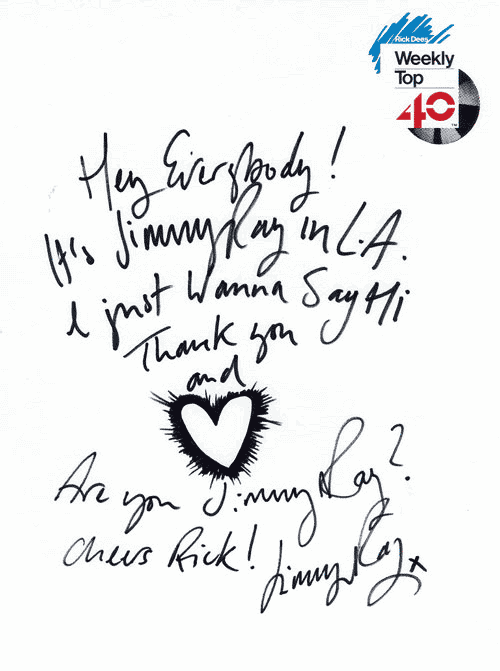 Rick Dees
Weekly
Top
40
TM
Hey Everybody!
It's Jimmy Ray in L.A.
I just Wanna Say Hi
Thank you
and
Are you Jimmy Ray?
Cheers Rick!
Jimmy Ray x